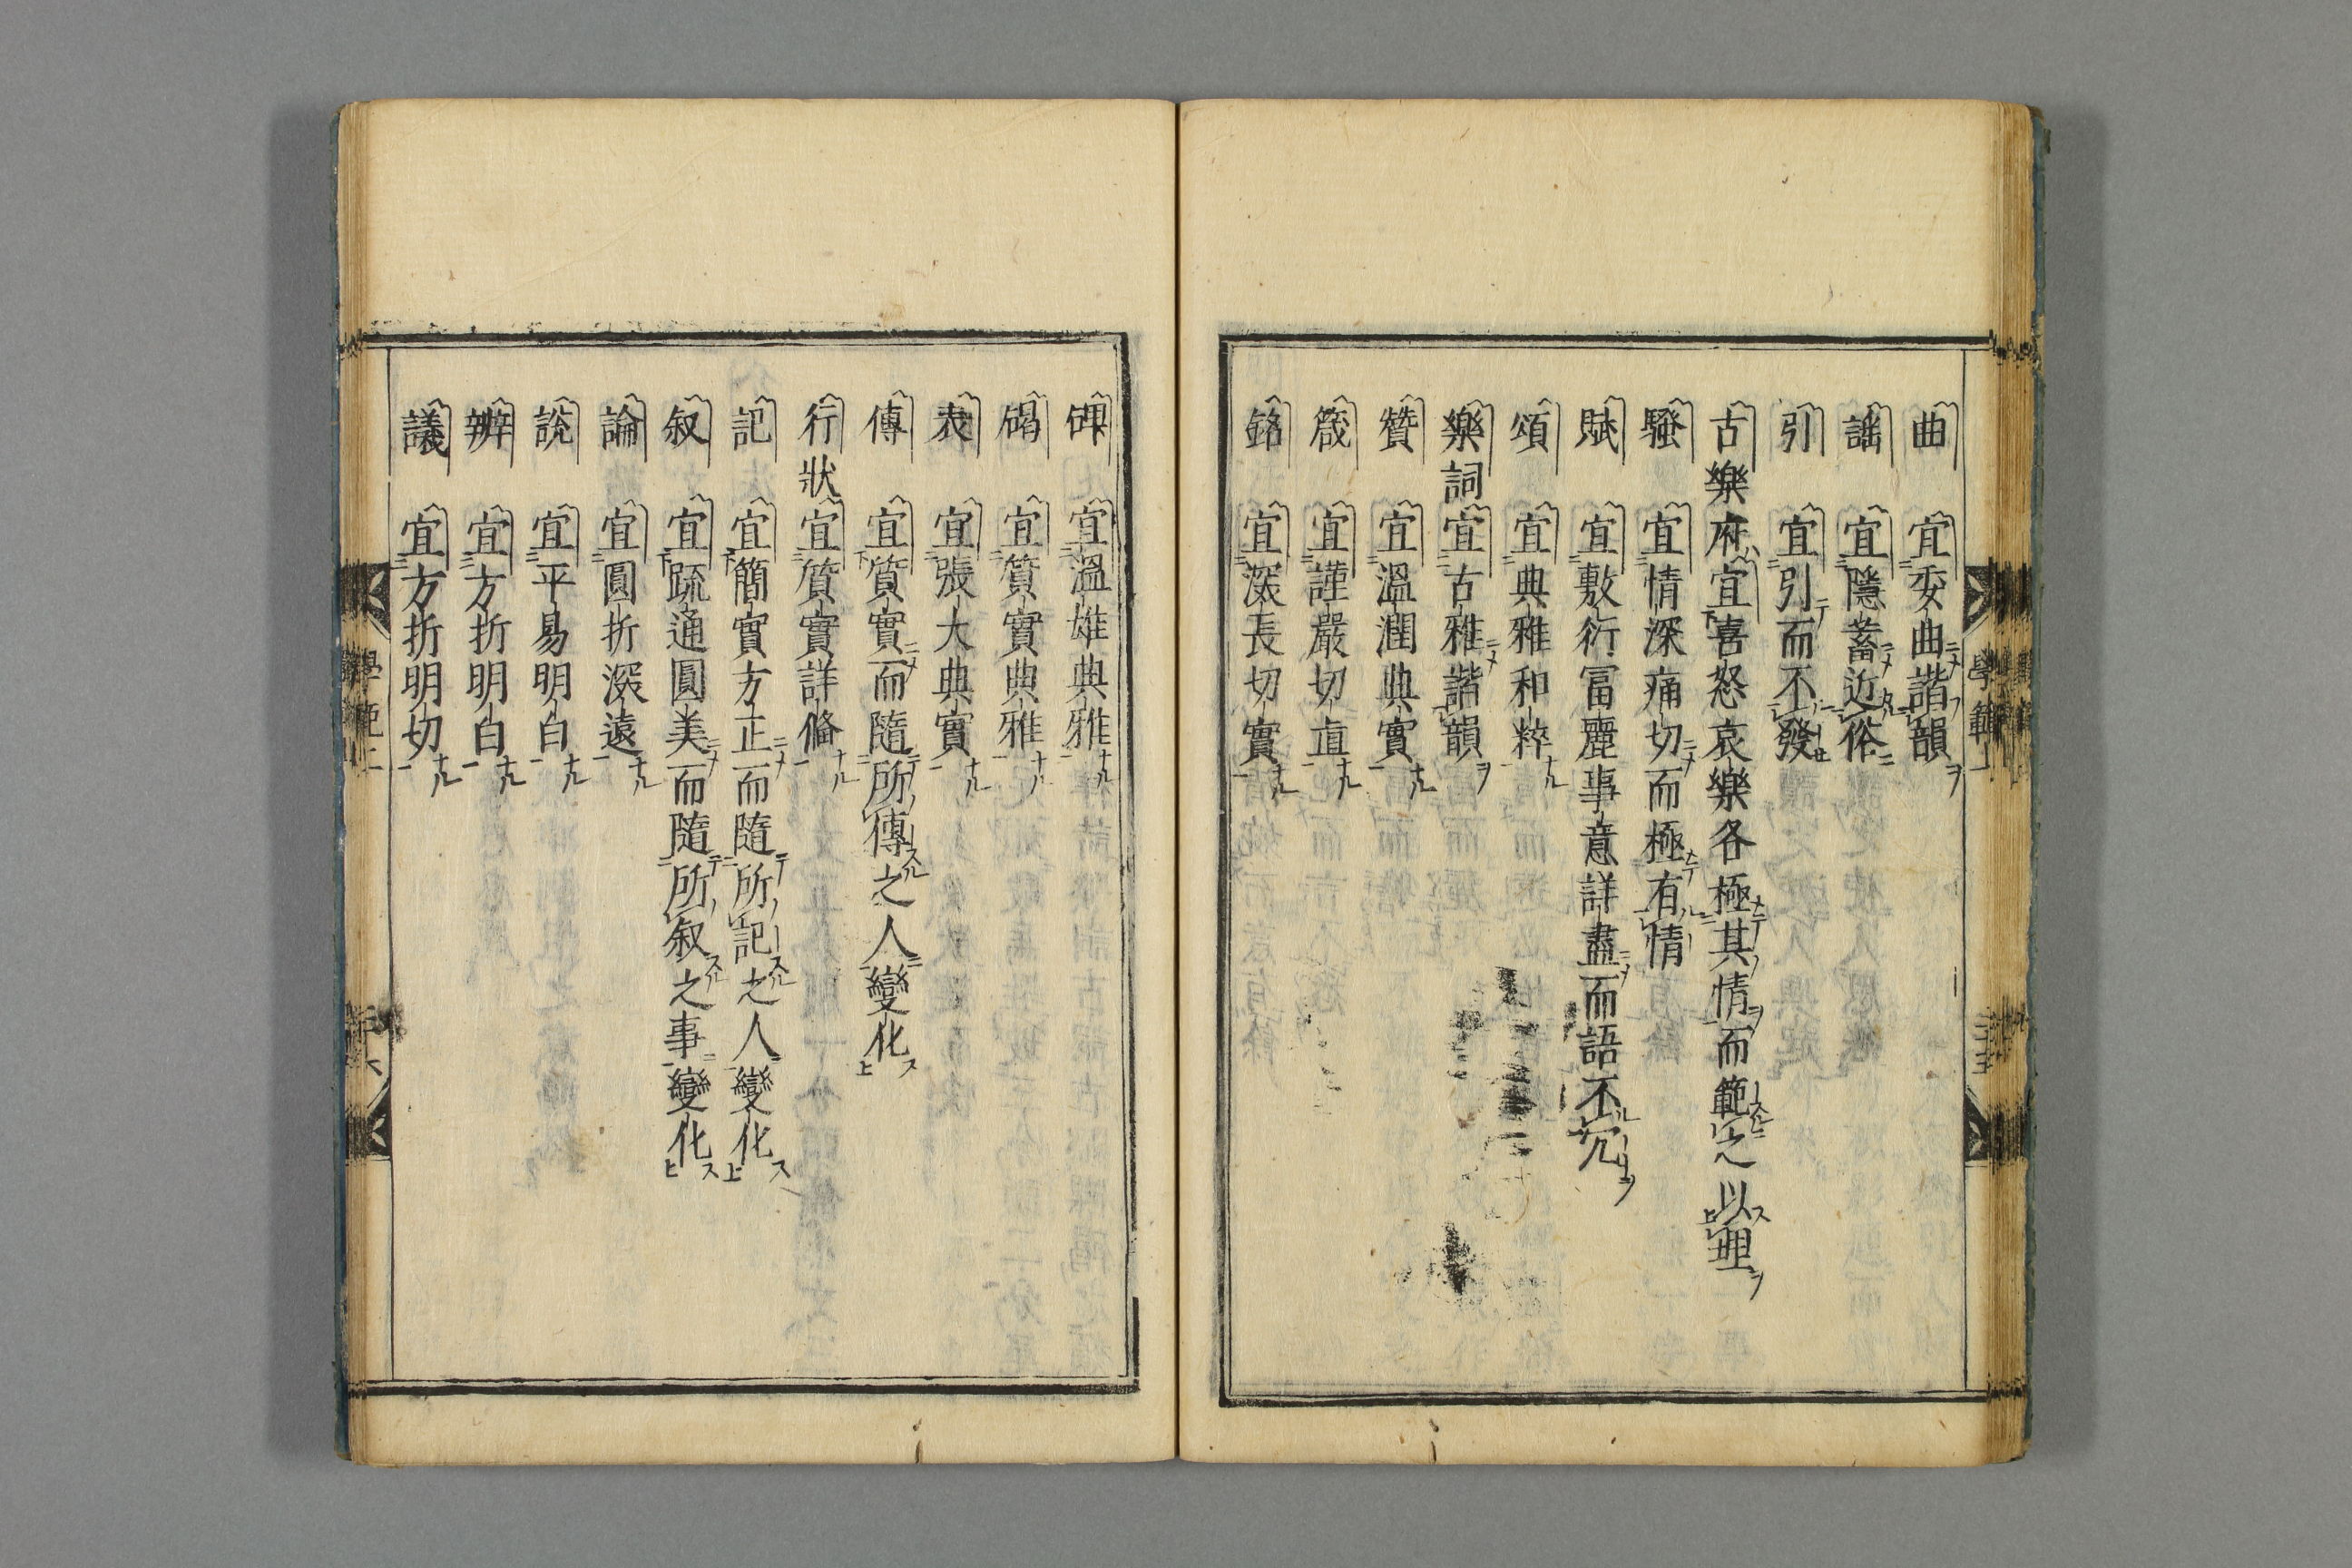 曲 宜委曲諧韻
謡 宜隱蓄近俗
引 宜引而不發
古樂府 宜喜怒哀樂各極其情而範之以理
騷 宜情深痛切而極有情
賦 宜敷衍富麗事意詳盡而語不冗
頌 宜典雅和粹
樂詞 宜古雅諧韻
贊 宜溫潤典實
箴 宜謹嚴切直
銘 宜深長切實
碑 宜溫雄典雅
碣 宜質實典雅
表 宜張大典實
傳 宜質實而隨所傳之人變化
行狀 宜質實詳備
記 宜簡實方正而隨所記之人變化
叙 宜疏通圓美而隨所叙之事變化
論 宜圓折深遠
說 宜平易明白
辨 宜方折明白
議 宜方折明切